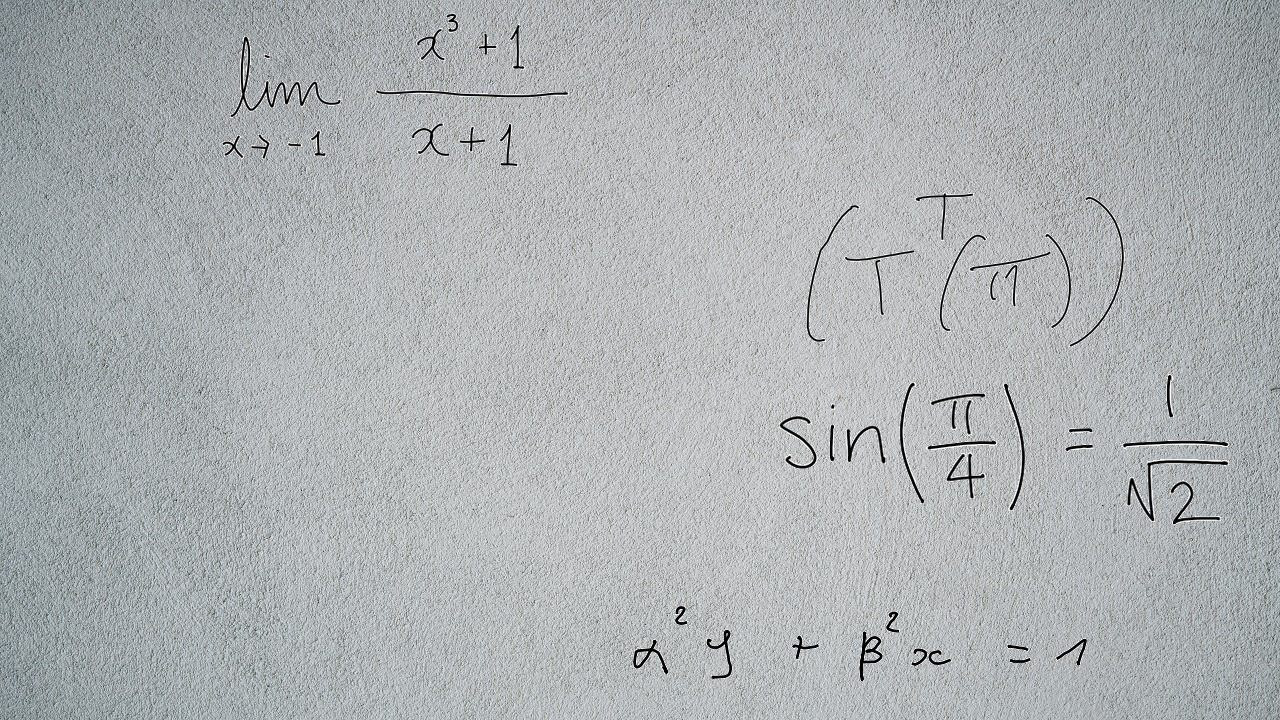 \lim_{x \to -1} \frac{x^3+1}{x+1}
(T^T(\pi))
\sin\left(\frac{\pi}{4}\right) = \frac{1}{\sqrt{2}}
\alpha^2 y + \beta^2 x = 1